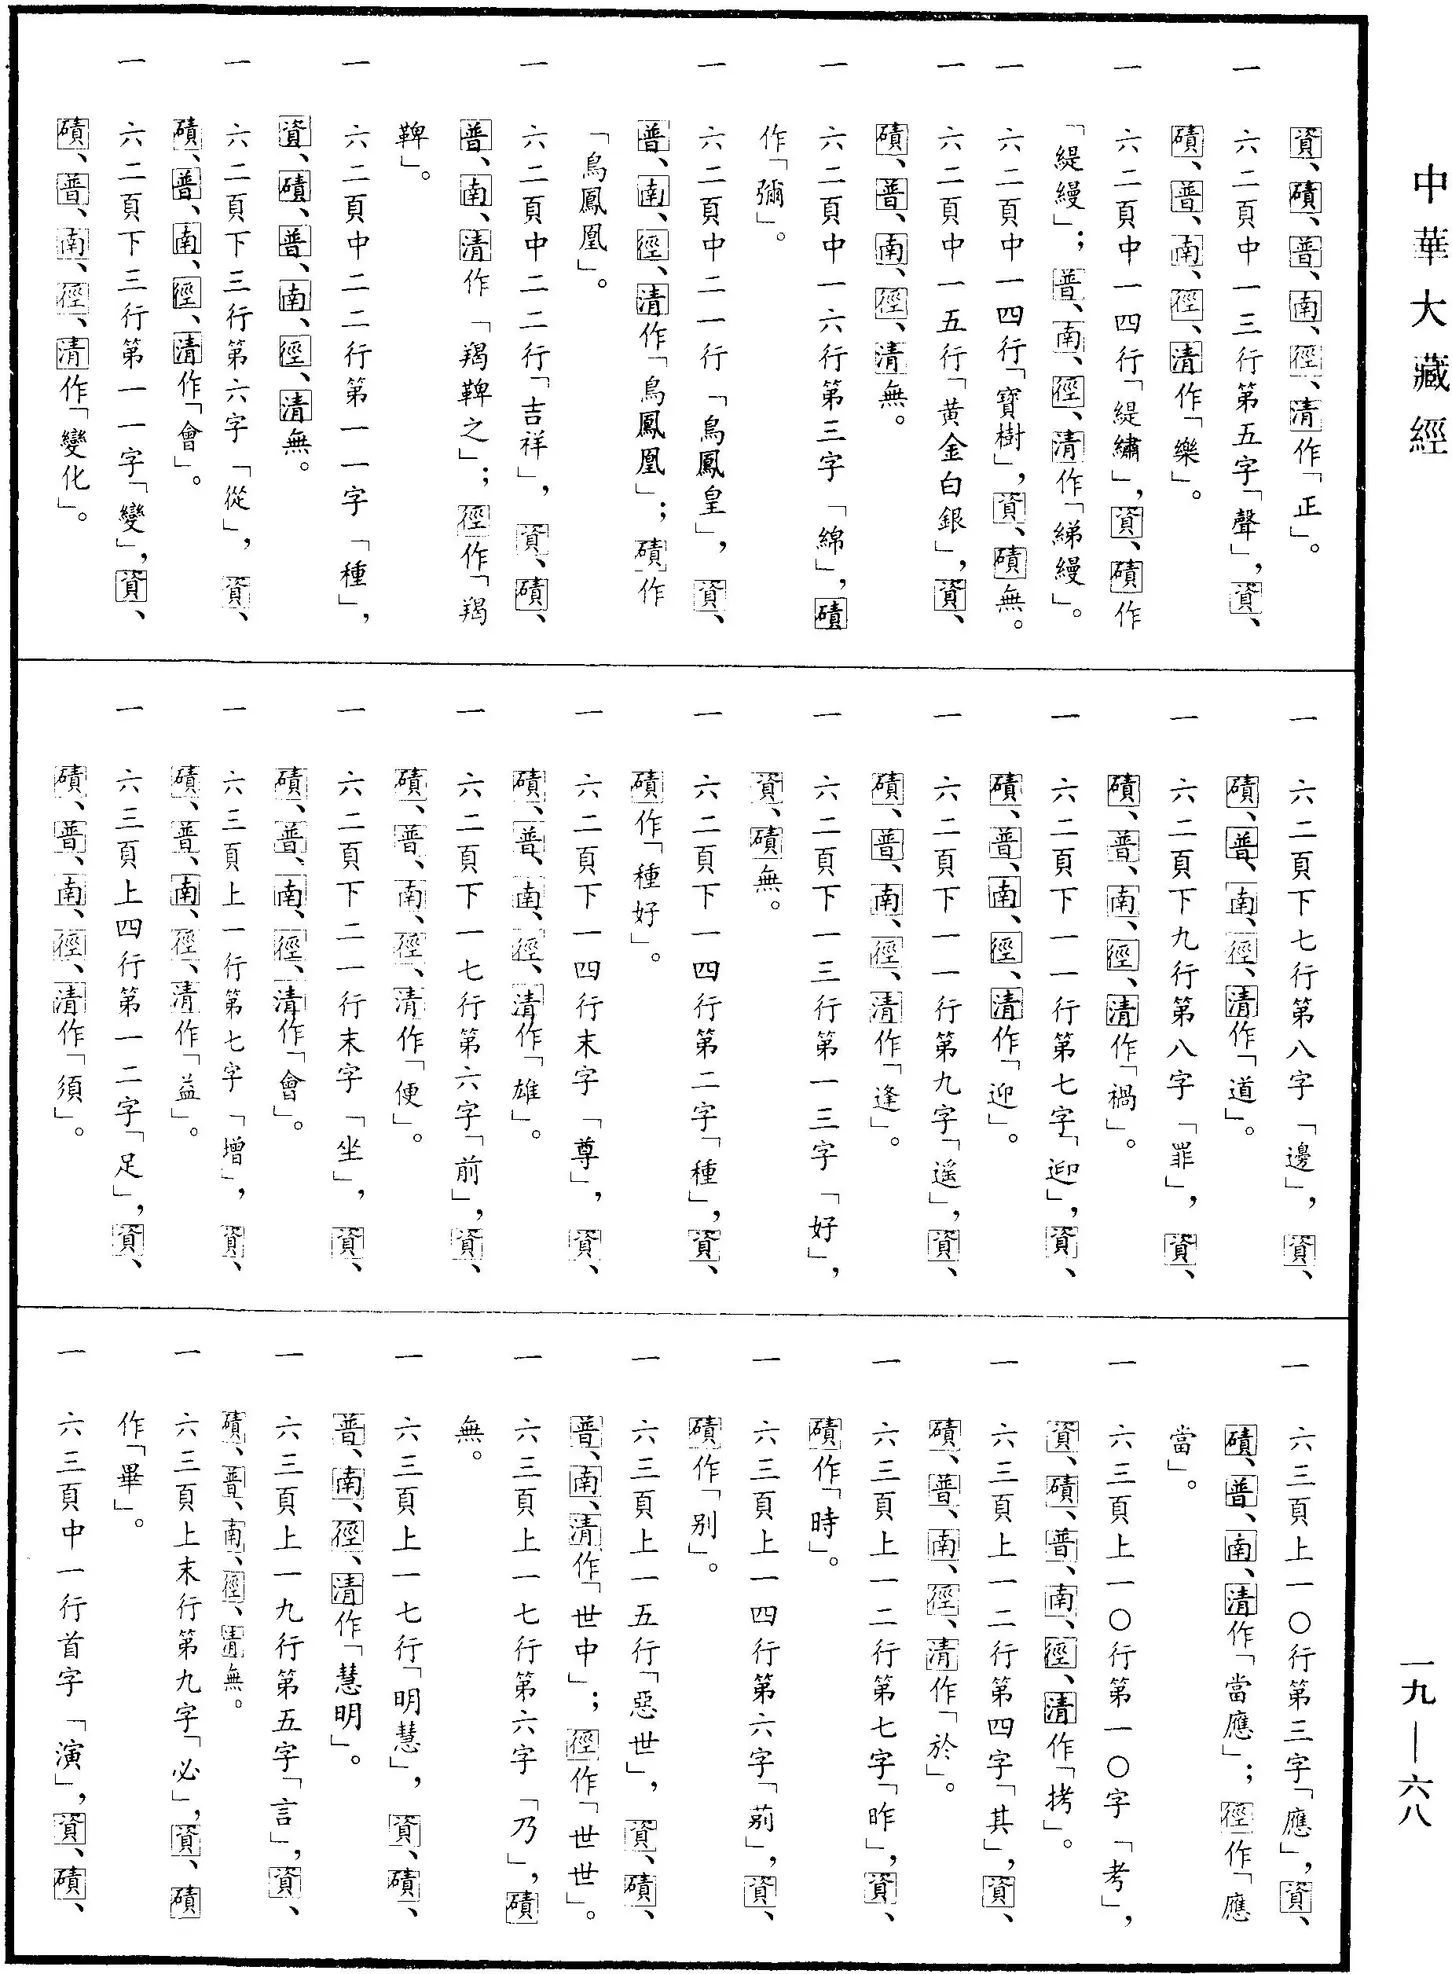 中華大藏經
資、磧、普、南、徑、清作「正」。
一 六二頁中一三行第五字「聲」，資、
磧、普、南、徑、清作「樂」。
一 六二頁中一四行「緹繡」，資、磧作
「緹縵」；普、南、徑、清作「綈縵」。
一 六二頁中一四行「寶樹」，資、磧無。
一 六二頁中一五行「黄金白銀」，資、
磧、普、南、徑、清無。
一 六二頁中一六行第三字「綿」，磧
作「彌」。
一 六二頁中二一行「鳥鳳皇」，資、
普、南、徑、清作「鳥鳳凰」；磧作
「鳥鳳凰」。
一 六二頁中二二行「吉祥」，資、磧、
普、南、清作「羯鞞之」；徑作「羯
鞞」。
一 六二頁中二二行第一一字「種」，
資、磧、普、南、徑、清無。
一 六二頁下三行第六字「從」，資、
磧、普、南、徑、清作「會」。
一 六二頁下三行第一一字「變」，資、
磧、普、南、徑、清作「變化」。
一 六二頁下七行第八字「邊」，資、
磧、普、南、徑、清作「道」。
一 六二頁下九行第八字「罪」，資、
磧、普、南、徑、清作「禍」。
一 六二頁下一一行第七字「迎」，資、
磧、普、南、徑、清作「迎」。
一 六二頁下一一行第九字「遥」，資、
磧、普、南、徑、清作「逢」。
一 六二頁下一三行第一三字「好」，
資、磧無。
一 六二頁下一四行第二字「種」，資、
磧作「種好」。
一 六二頁下一四行末字「尊」，資、
磧、普、南、徑、清作「雄」。
一 六二頁下一七行第六字「前」，資、
磧、普、南、徑、清作「便」。
一 六二頁下二一行末字「坐」，資、
磧、普、南、徑、清作「會」。
一 六三頁上一行第七字「增」，資、
磧、普、南、徑、清作「益」。
一 六三頁上四行第一二字「足」，資、
磧、普、南、徑、清作「須」。
一 六三頁上一〇行第三字「應」，資、
磧、普、南、清作「當應」；徑作「應
當」。
一 六三頁上一〇行第一〇字「考」，
資、磧、普、南、徑、清作「拷」。
一 六三頁上一二行第四字「其」，資、
磧、普、南、徑、清作「於」。
一 六三頁上一二行第七字「昨」，資、
磧作「時」。
一 六三頁上一四行第六字「莂」，資、
磧作「别」。
一 六三頁上一五行「惡世」，資、磧、
普、南、清作「世中」；徑作「世世」。
一 六三頁上一七行第六字「乃」，磧
無。
一 六三頁上一七行「明慧」，資、磧、
普、南、徑、清作「慧明」。
一 六三頁上一九行第五字「言」，資、
磧、普、南、徑、清無。
一 六三頁上末行第九字「必」，資、磧
作「畢」。
一 六三頁中一行首字「演」，資、磧、
一九—六八